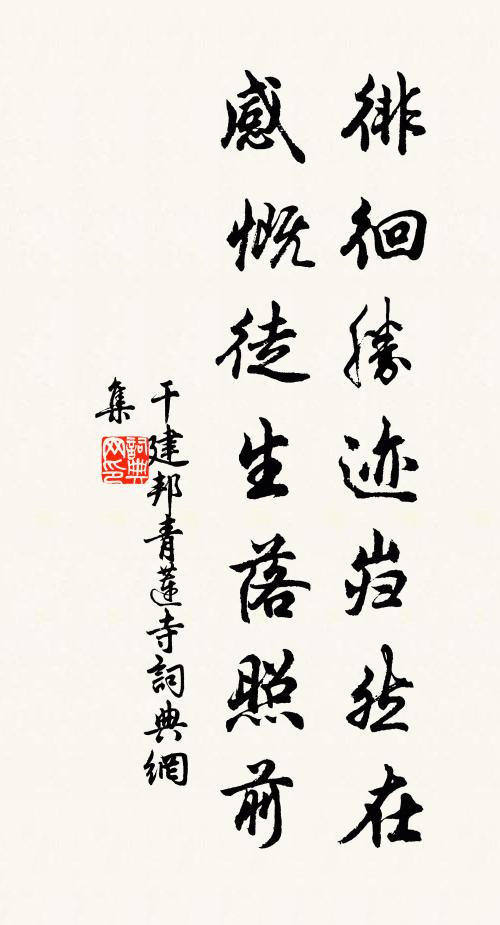 徘徊勝迹岿然在
感慨徒生落照前
干建邦青蓮寺詞典網
集
詞典
网印